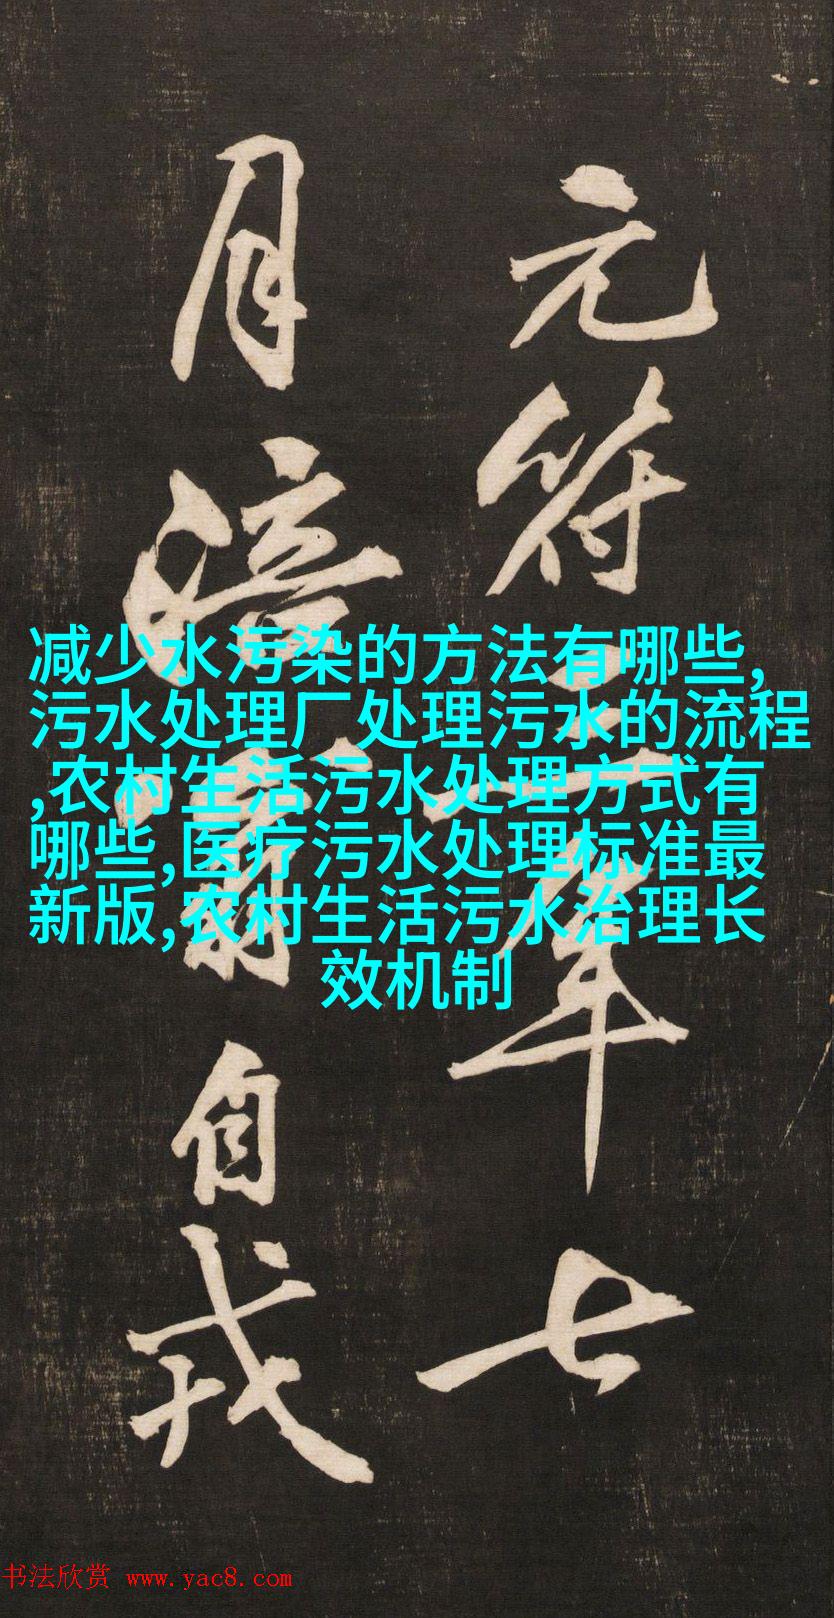 元符三年七
月涪翁自戎
减少水污染的方法有哪些,
污水处理厂处理污水的流程
,农村生活污水处理方式有
哪些,医疗污水处理标准最
新版,农村生活污水治理长
效机制
书法欣赏 www.yac8.com